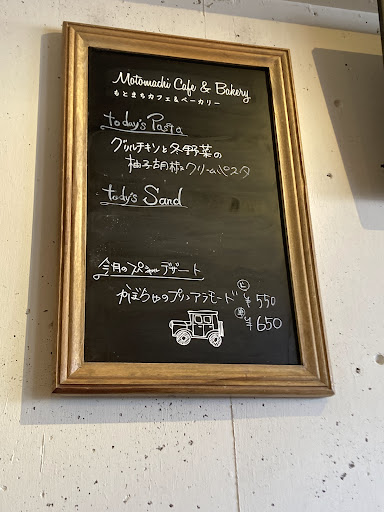 Motomachi Cafe & Bakery
もとまちカフェ&ベーカリー
today's Pasta
グリルチキンと冬野菜の
柚子胡椒クリームパスタ
today's Sand
今月のスペシャルデザート
かぼちゃのプリンアラモード ¥550
¥650